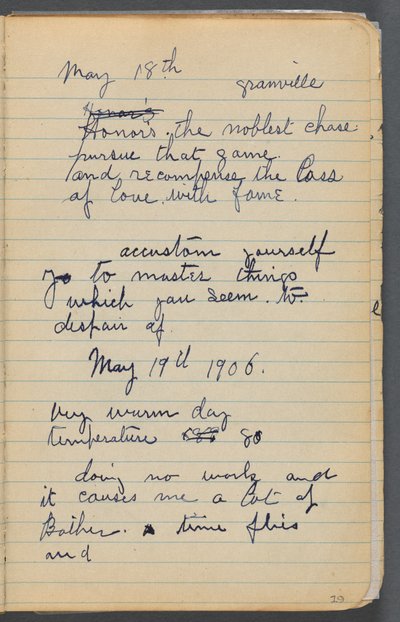 May 18th
Granville
Honor's
Honor's the noblest chase
pursue that game
and recompense the Loss
of Love with Fame.
accustom yourself
to to master things
which you seem to
despair of
May 19th 1906.
Very warm day
temperature 80
doing no work and
it causes me a Lot of
Bother. time flies
and
19